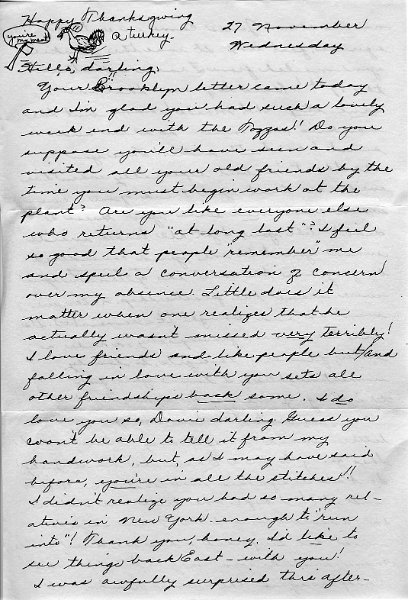 Happy Thanksgiving
27 November
you're my meat
A turkey.
Wednesday
Hello, darling:
Your Brooklyn letter came today
and I'm glad you had such a lovely
week end with the Do you
suppose you'll have seen and
visited all your old friends by the
time you must begin work at the
plant? Are you like everyone else
who returns "at long last"? I feel
so good that people "remember" me
and spiel a conversation of concern
over my absence. Little does it
matter when one realizes that he
actually wasn't missed very terribly!
I love friends and like people but/and
falling in love with you sets all
other friendships back some. I do
love you so, darling. Guess you
won't be able to tell it from my
handwork, but, as I may have said
before, you're in all the stitches!!
I didn't realize you had so many rel-
atives in New York - enough to "run
into"! Thank you, honey. I'd like to
see things back East - with you!
I was awfully surprised this after-